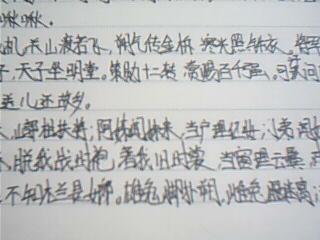 啾啾。
山渡若飞，朔气传金柝，寒光照铁衣。将军
天子坐明堂。策勋十二转，赏赐百千强。可汗问
送儿还故乡。
扶将；阿姊闻妹来，当户理红妆；小弟闻姊
脱我战时袍，著我旧时裳，当窗理云鬓
不知木兰是女郎。雄兔脚扑朔，雌兔眼迷离；